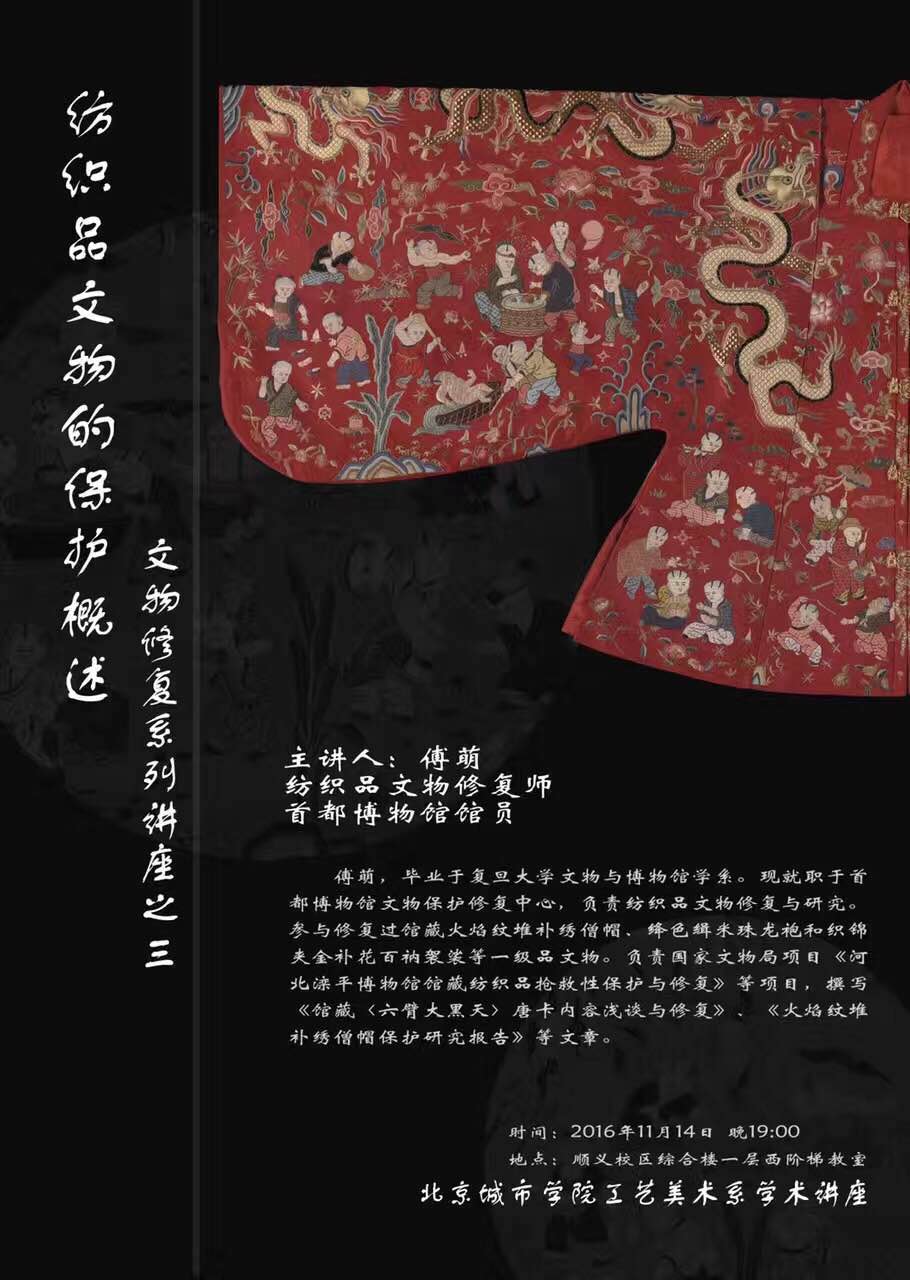 纺织品文物的保护概述
文物修复系列讲座之三
主讲人：傅萌
纺织品文物修复师
首都博物馆馆员
傅萌，毕业于复旦大学文物与博物馆学系。现就职于首
都博物馆文物保护修复中心，负责纺织品文物修复与研究。
参与修复过馆藏火焰纹堆补绣僧帽、绛色缉米珠龙袍和织锦
夹金补花百衲袈裟等一级品文物。负责国家文物局项目《河
北滦平博物馆馆藏纺织品抢救性保护与修复》等项目，撰写
《馆藏〈六臂大黑天〉唐卡内容浅谈与修复》、《火焰纹堆
补绣僧帽保护研究报告》等文章。
时间：2016年11月14日 晚19:00
地点：顺义校区综合楼一层西阶梯教室
北京城市学院工艺美术系学术讲座